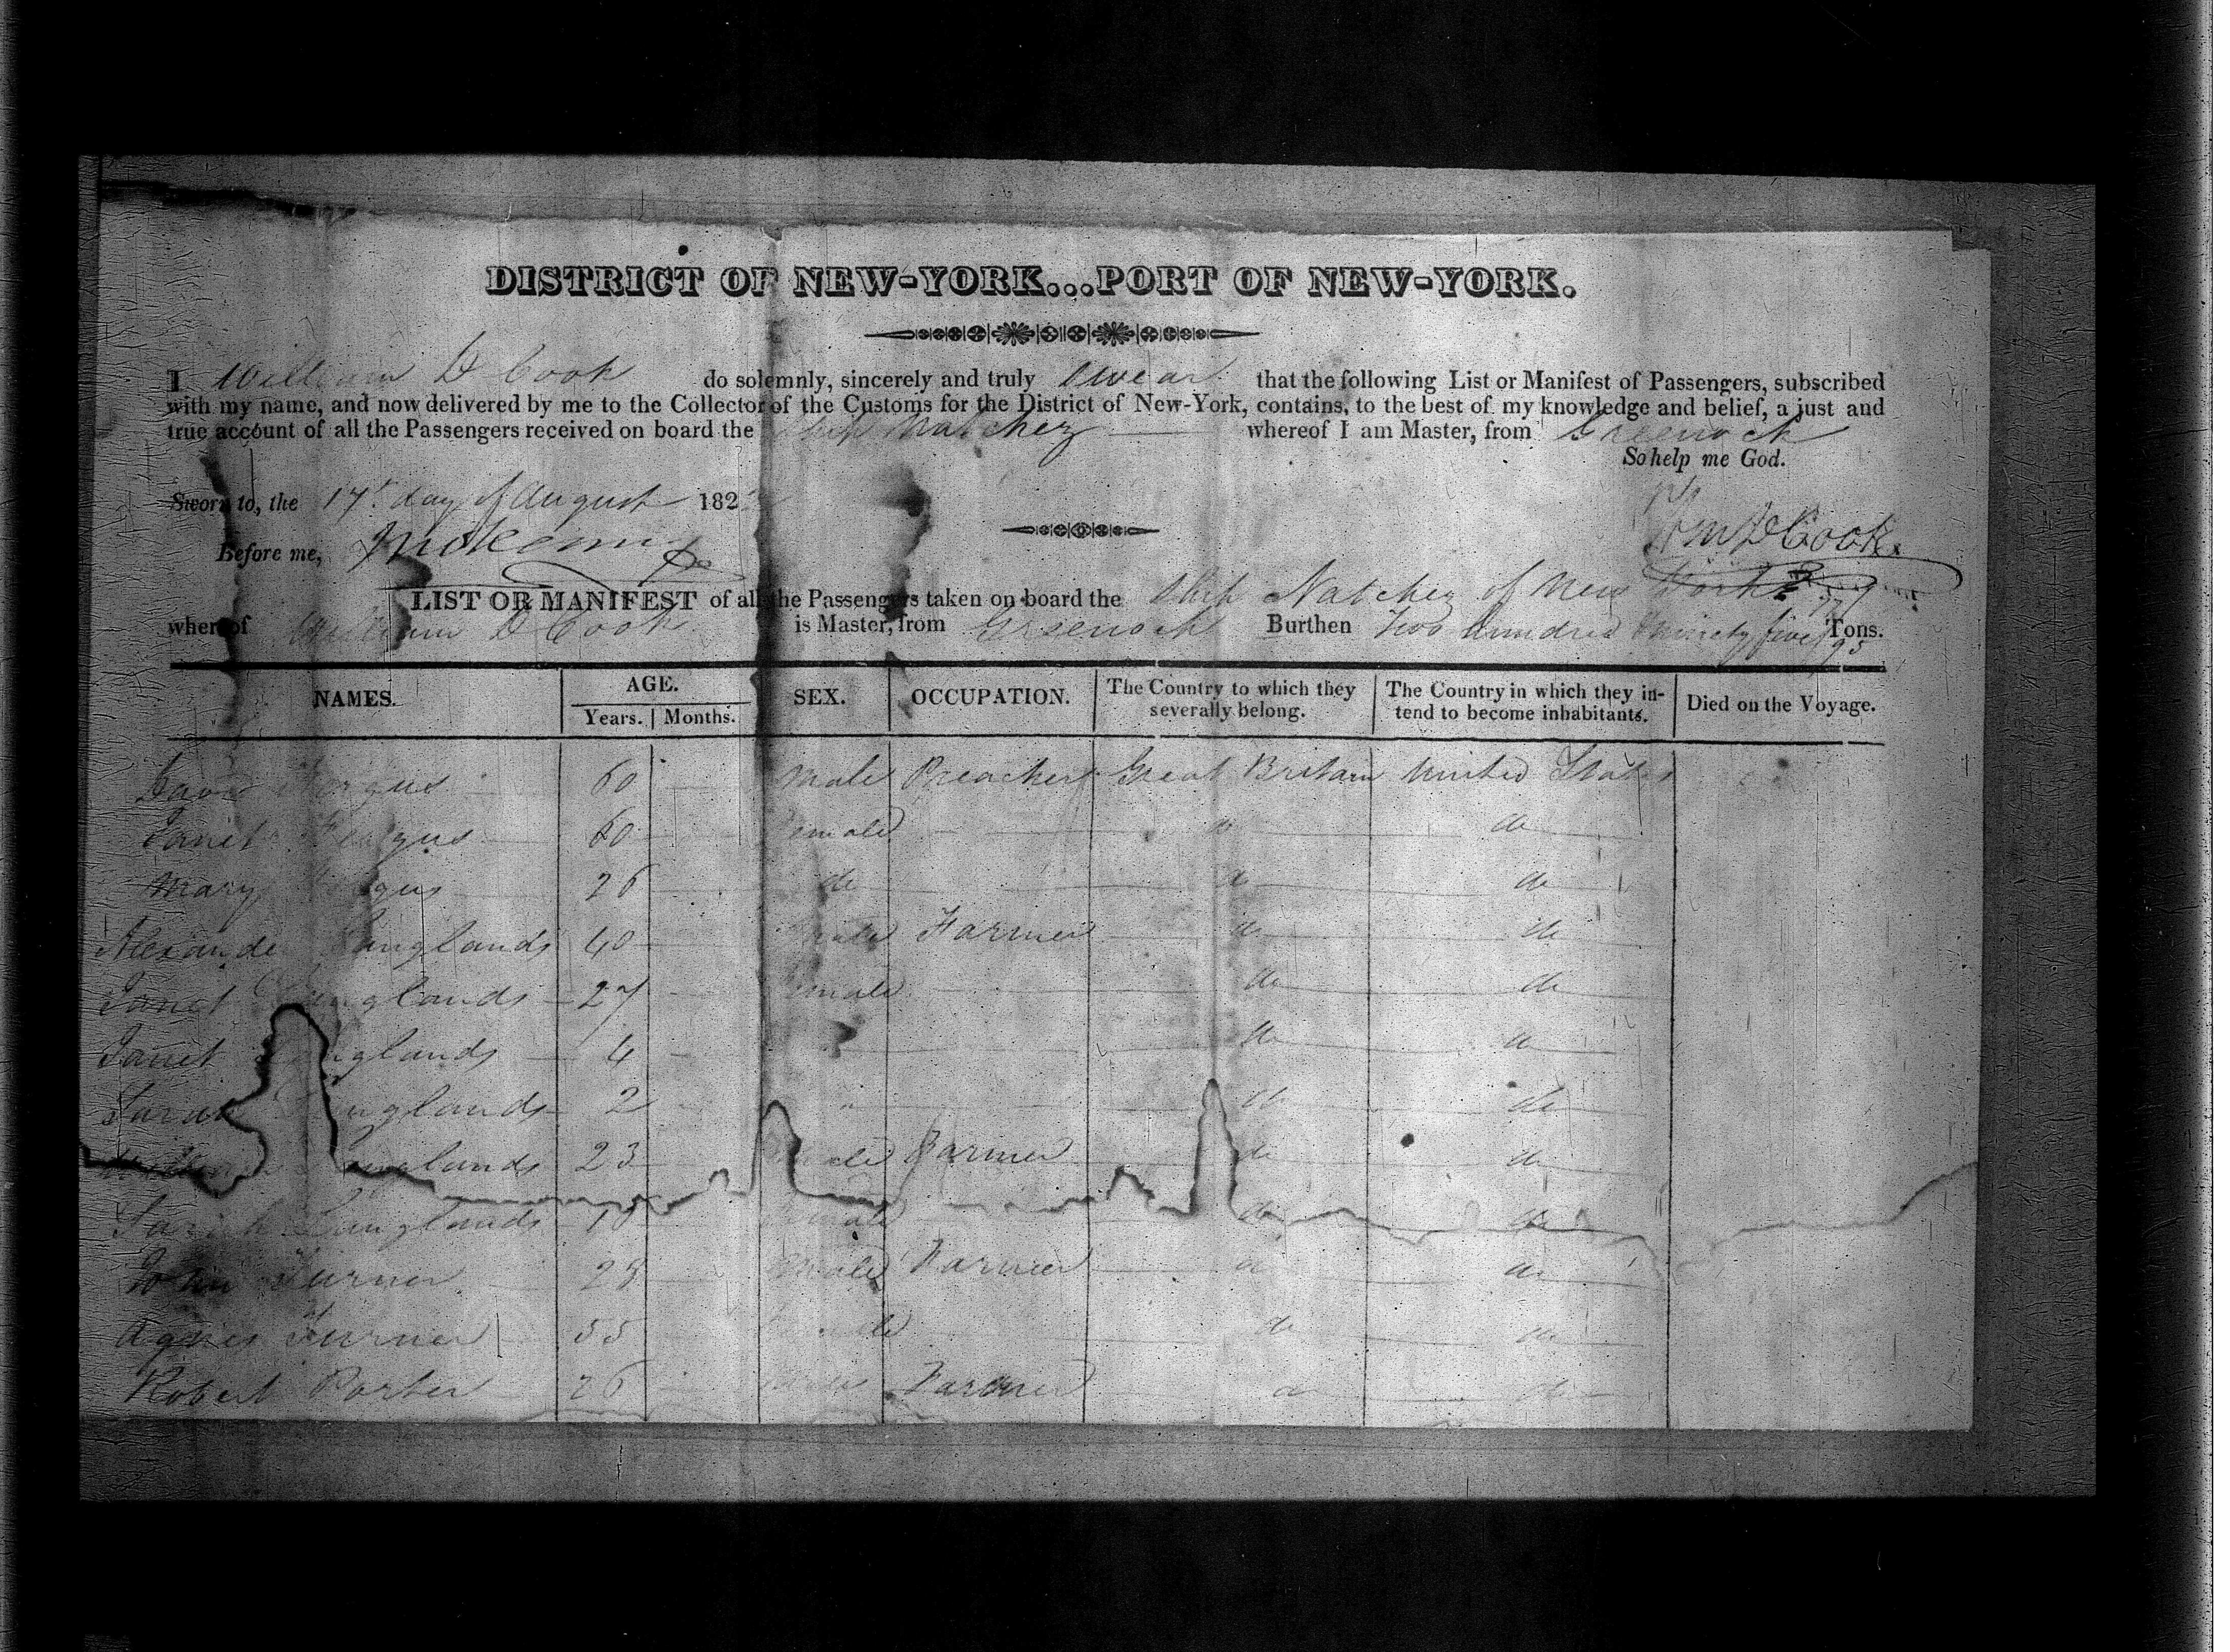 DISTRICT OF NEW-YORK...PORT OF NEW-YORK.
I William D Cook do solemnly, sincerely and truly swear that the following List or Manifest of Passengers, subscribed
with my name, and now delivered by me to the Collector of the Customs for the District of New-York, contains, to the best of my knowledge and belief, a just and
true account of all the Passengers received on board the Ship Natchez whereof I am Master, from Greenock
So help me God.
Sworn to, the 17th day of August 182
Before me,
Wm D Cook.
LIST OR MANIFEST of all the Passengers taken on board the Ship Natchez of New York
whereof William D Cook is Master, from Greenock Burthen Two hundred & ninety five /95 Tons.
NAMES. AGE. SEX. OCCUPATION. The Country to which they severally belong. The Country in which they intend to become inhabitants. Died on the Voyage.
Years. Months.
David Fergus 60 Male Preacher Great Britain United States
Janet Fergus 60 Female do do
Mary Fergus 26 do do do
Alexander Langlands 40 Male Farmer do do
Janet Langlands 27 Female do do
Janet Langlands 4 do do
Sarah Langlands 2 do do
Langlands 23 Male Farmer do do
Langlands 18 Female do do
John Turner 28 Male Farmer do do
Agnes Turner 55 Female do do
Robert Porter 26 Male Farmer do do